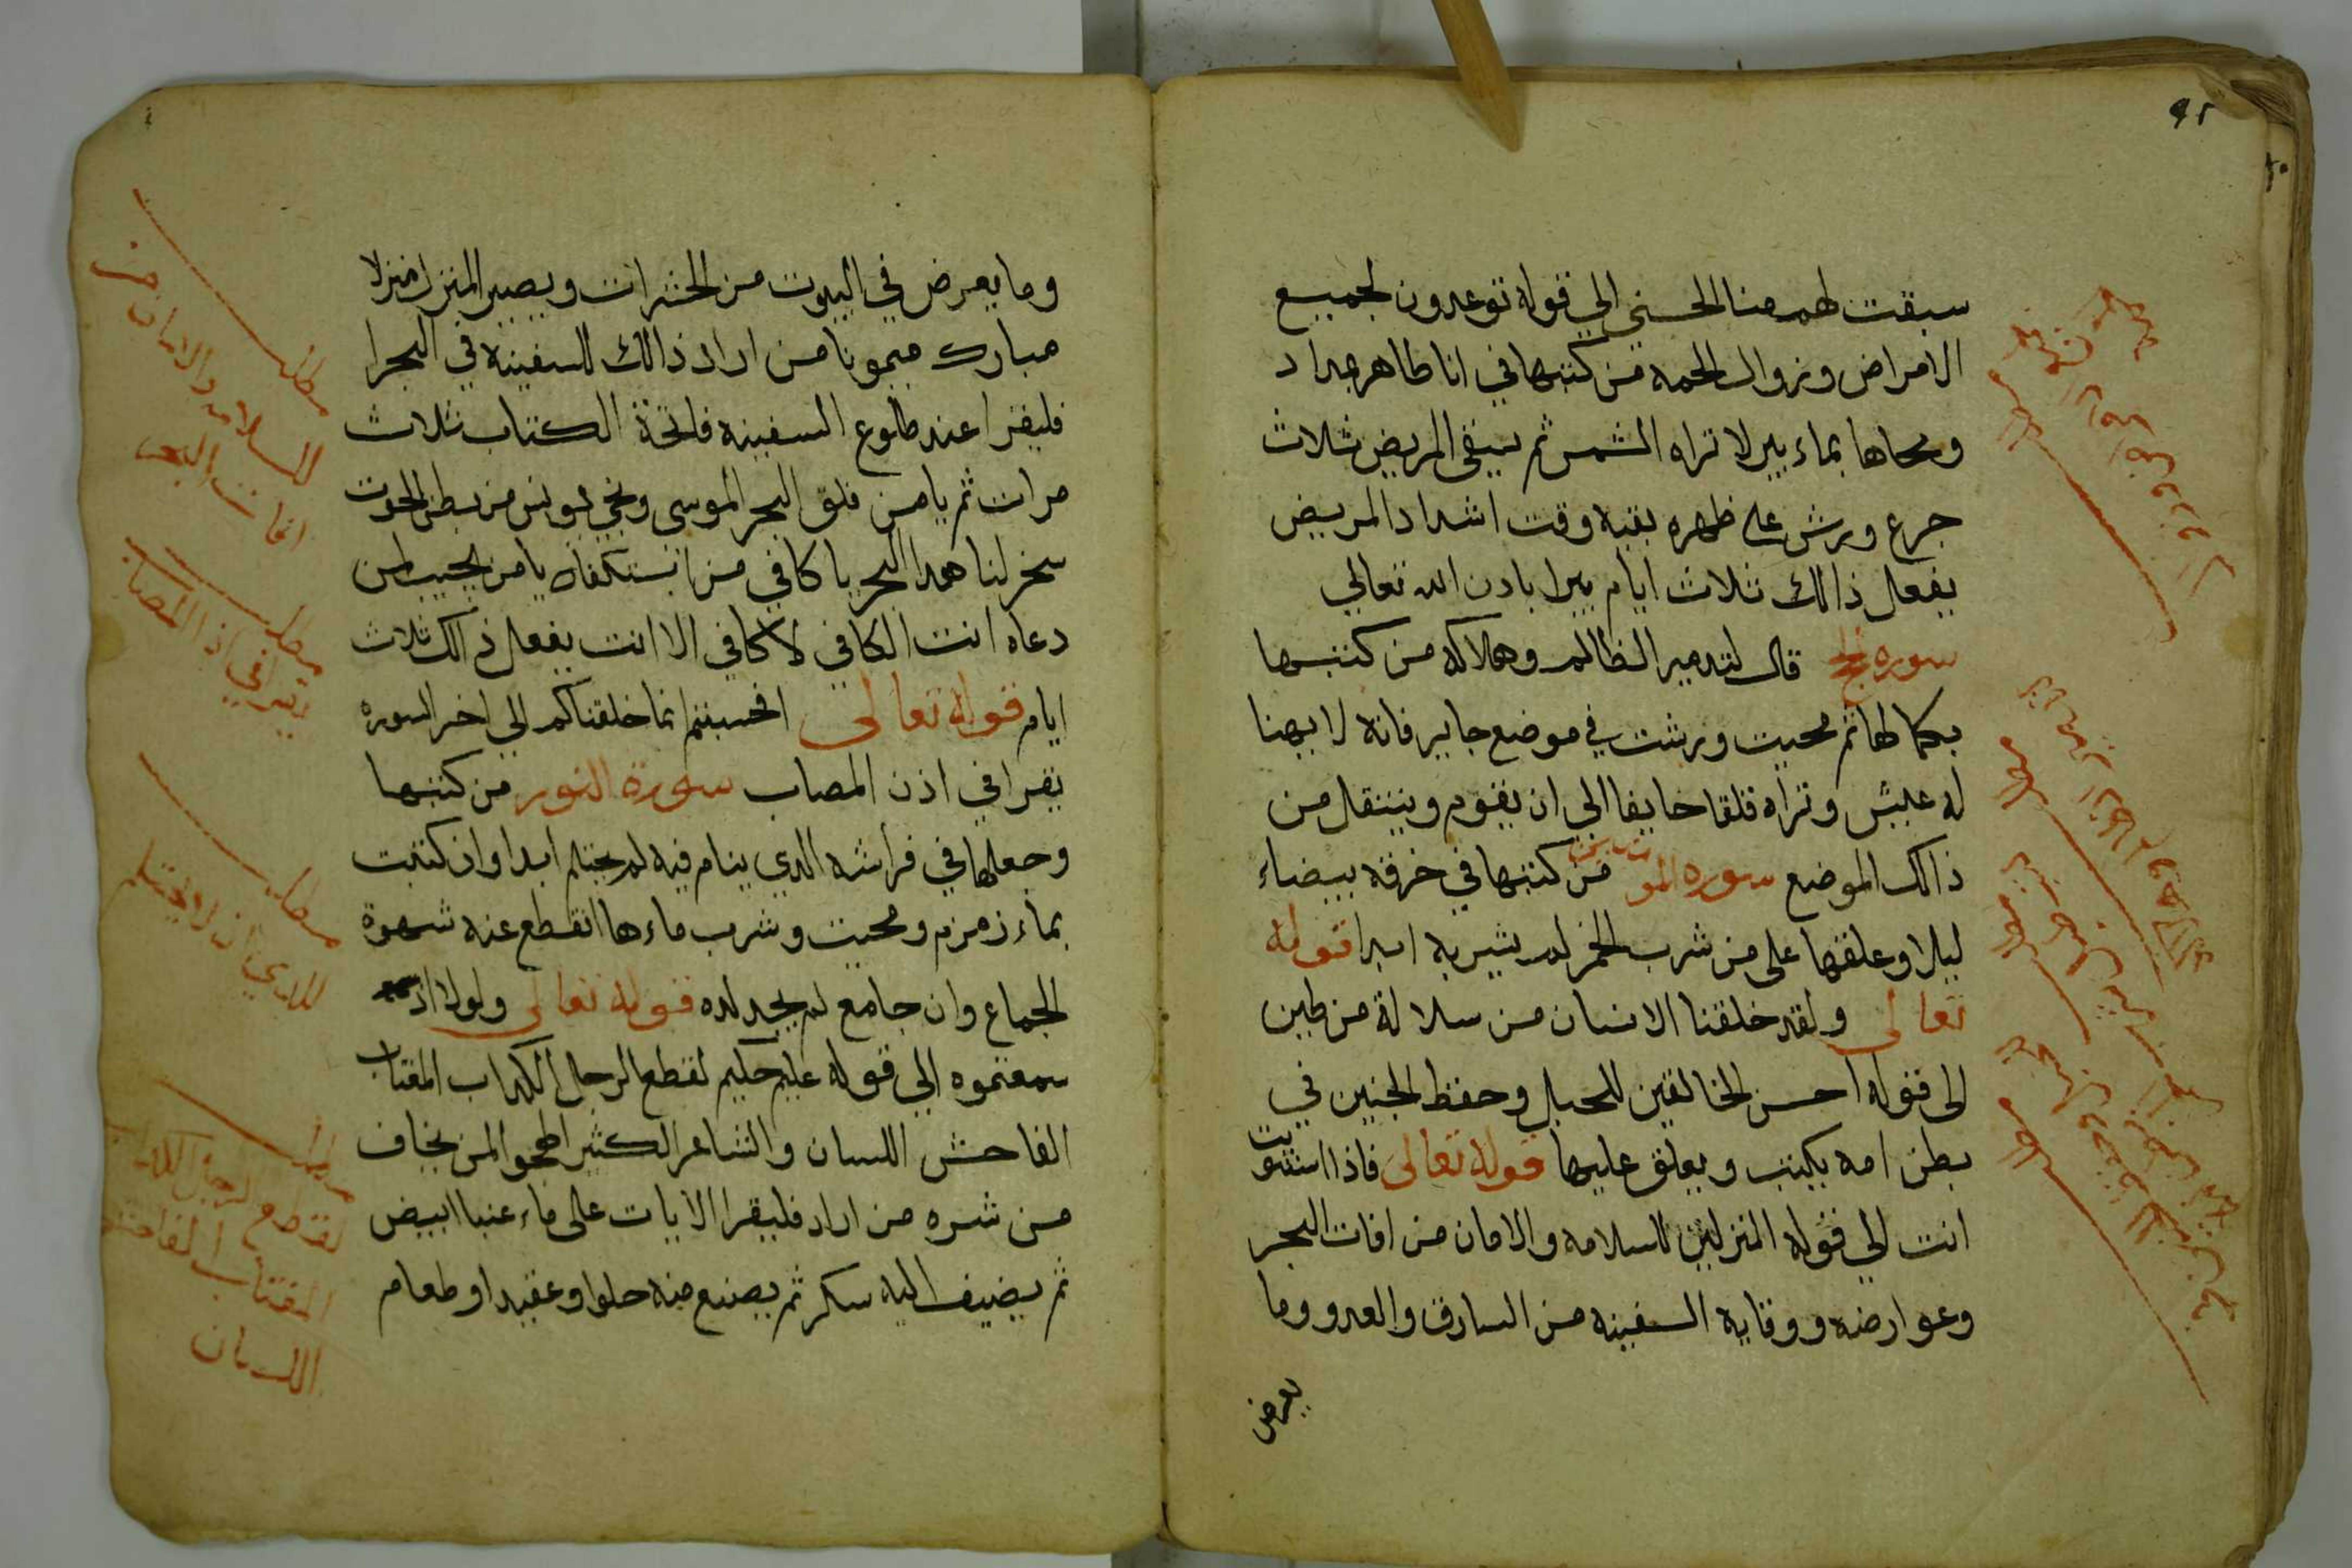 ٩٢
سبقت لهم منا الحسني الي قوله توعدون لجميع
الامراض وزوال الحمه من كتبها في انا طاهر
ومحاها بماء بير لا تراه الشمس ثم يسقي المريض ثلاث
جرع ويرش على ظهره بقيه وقت اشداد المريض
يفعل ذالك ثلاث ايام يبرا بادن الله تعالي
سوره الحج قال لتدمير الظالم وهلاكه من كتبها
بكمالها ثم محيت ورشت في موضع جاير فانه لا يهنا
له عيش وتراه قلقا خايفا الي ان يقوم وينتقل من
ذالك الموضع سوره المومنين من كتبها في خرقه بيضاء
ليلا وعلقها على من شرب الخمر لم يشربه ابدا قوله
تعالى ولقد خلقنا الانسان من سلالة من طين
الى قوله احسن الخالقين للحبل وحفظ الجنين في
بطن امه يكتب ويعلق عليها قوله تعالى فاذا استويت
انت الي قوله المنزلين للسلامه والامان من افات البحر
وعوارضه ووقاية السفينه من السارق والعدو وما
يعرض
وما يعرض في البيوت من الحشرات ويصير المنزل منزلا
مبارك ميمونا من اراد ذالك للسفينه في البحر
فليقرا عند طلوع السفينه فاتحة الكتاب ثلاث
مرات ثم يا من فلق البحر لموسى ونجي يونس من بطن الحوت
سخر لنا هدا البحر يا كافي من استكفاه يا من يجيب لمن
دعاه انت الكافي لا كافي الا انت يفعل ذالك ثلاث
ايام قوله تعالى افحسبتم انما خلقناكم الي اخر السوره
يقرا في اذن المصاب سورة النور من كتبها
وجعلها في فراشه الدي ينام فيه لم يحتلم ابدا وان كتبت
بماء زمزم ومحيت وشرب ماءها انقطع عنه شهوة
الجماع وان جامع لم يجد لده قوله تعالى ولولا اذ
سمعتموه الي قوله عليم حكيم لقطع الرجل الكداب المغتاب
الفاحش اللسان والشاعر الكثير الهجوا لمن يخاف
من شره من اراد فليقرا الايات على ماء عنبا ابيض
ثم يضيف اليه سكر ثم يصنع منه حلوا وعقيد او طعام
مطلب
للسلامه والامان من
افات البحر
مطلب
يقرا في اذن المصاب
مطلب
للدي ان لا يحتلم
مطلب
لقطع الرجل الكداب
المغتاب الفاحش
اللسان